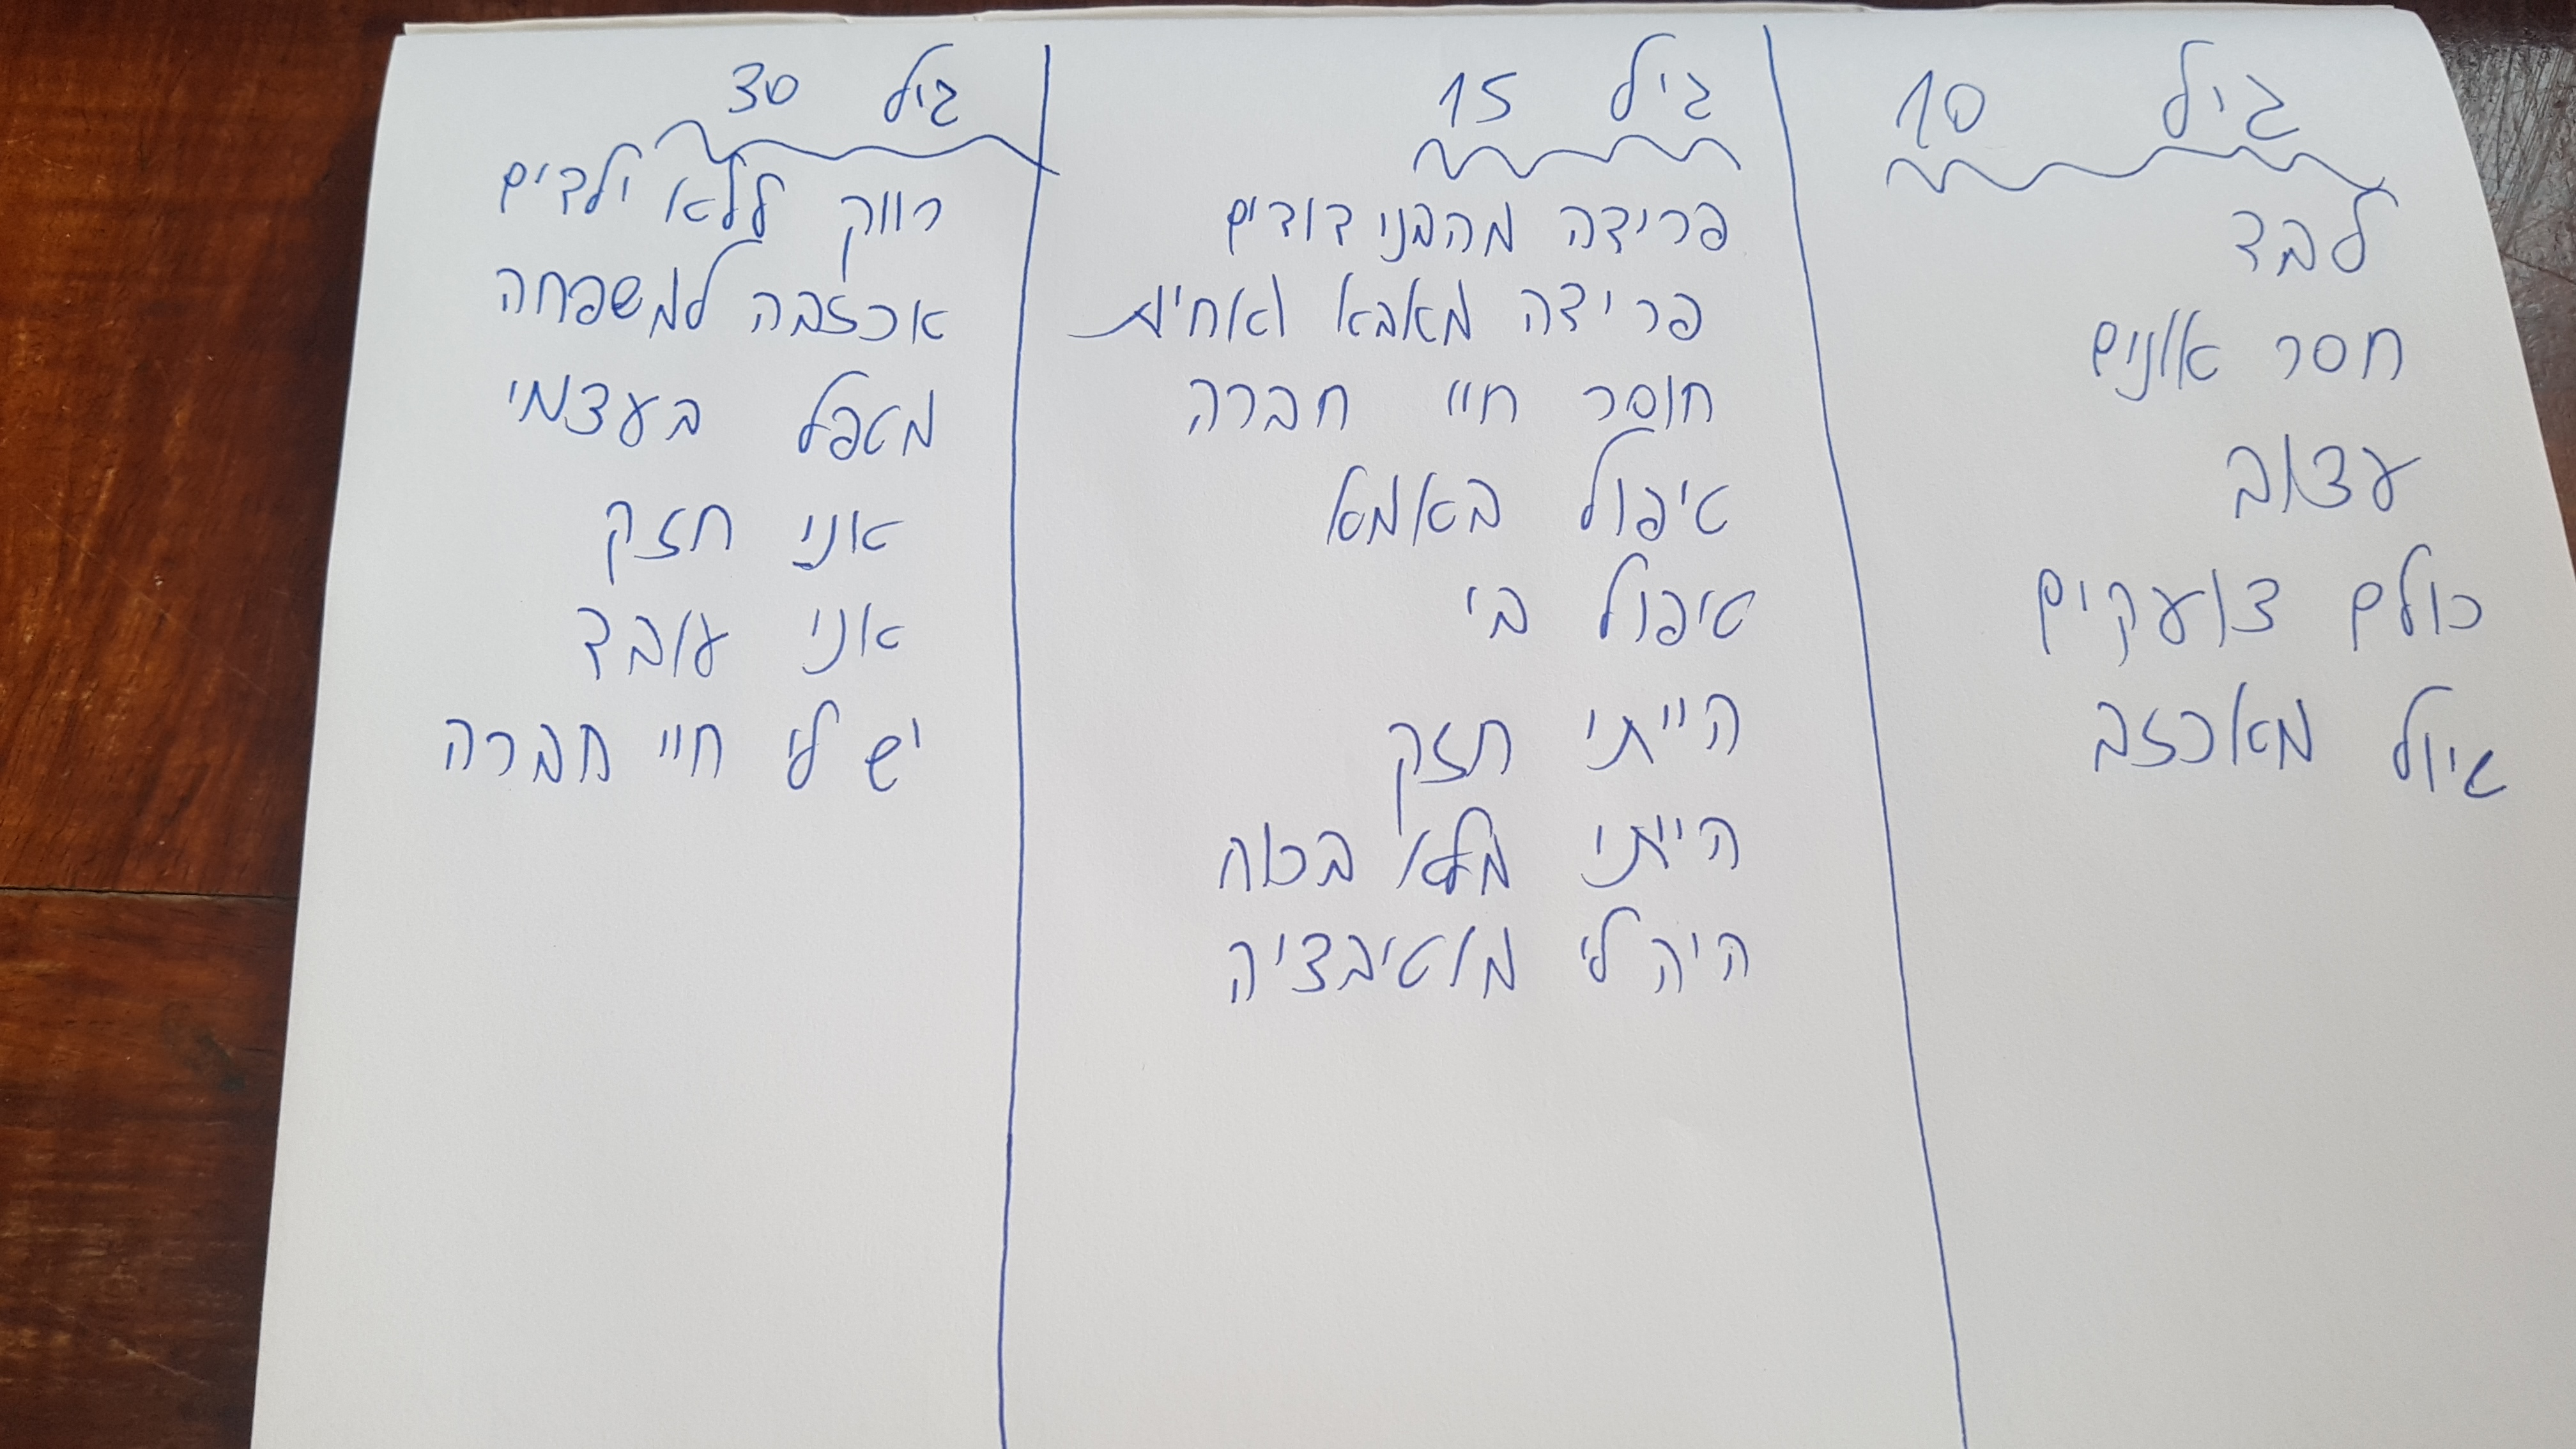 גיל 10
לבד
חסר אונים
עצוב
כולם צועקים
טיול מאכזב
גיל 15
פרידה מהבני דודים
פרידה מאבא ואחיות
חוסר חיי חברה
טיפול באמא
טיפול בי
הייתי חזק
הייתי מלא בכוח
היה לי מוטיבציה
גיל 30
רווק ללא ילדים
אכזבה למשפחה
מטפל בעצמי
אני חזק
אני עובד
יש לי חיי חברה